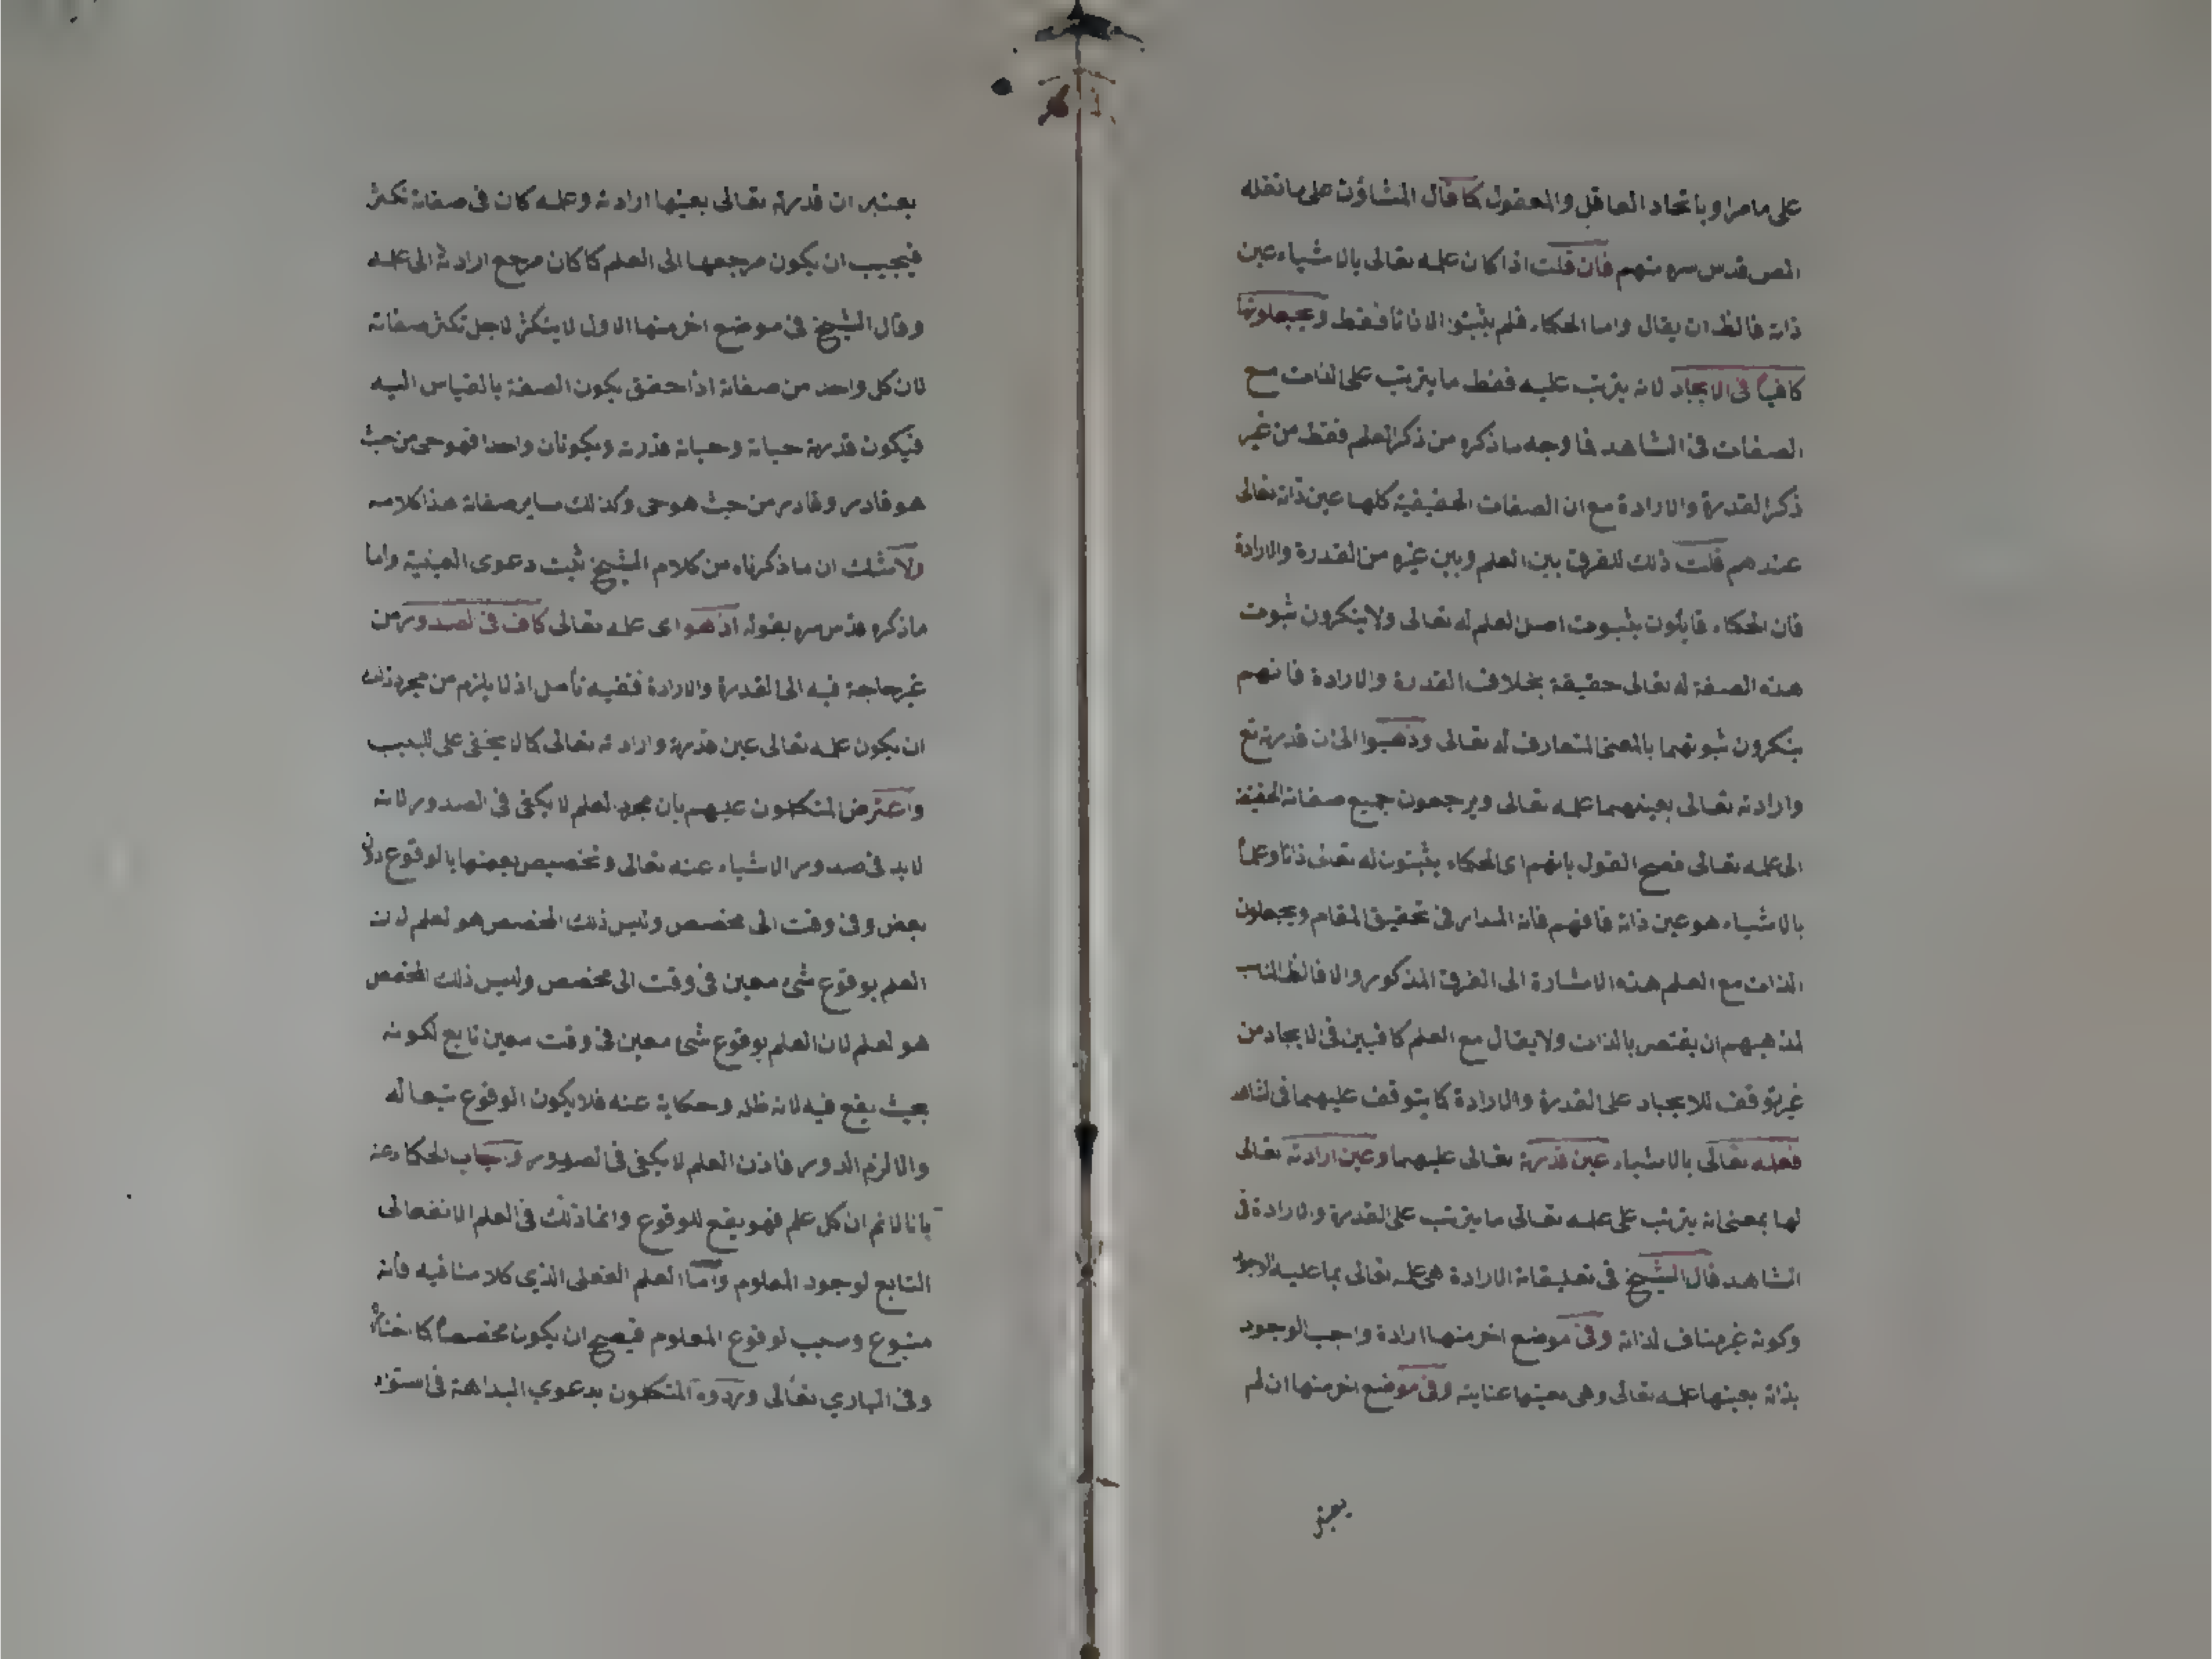 على ما مر او باتحاد العاقل والمعقول كما قال المشاؤن على ما نقله
المص قدس سره منهم فان قلت اذا كان علمه تعالى بالاشياء عين
ذاته فالظ ان يقال واما الحكماء فلم يثبتوا الا ذاتا فقط ويجعلونها
كافيا فى الايجاد لانه يترتب عليه فقط ما يترتب على الذات مع
الصفات فى الشاهد فما وجه ما ذكره من ذكر العلم فقط من غير
ذكر القدرة والارادة مع ان الصفات الحقيقية كلها عين ذاته تعالى
عندهم قلت ذلك للفرق بين العلم وبين غيره من القدرة والارادة
فان الحكماء قايلون بثبوت اصل العلم له تعالى ولا ينكرون ثبوت
هذه الصفة له تعالى حقيقة بخلاف القدرة والارادة فانهم
ينكرون ثبوتهما بالمعنى المتعارف له تعالى وذهبوا الى ان قدرته تع
وارادته تعالى بعينهما علمه تعالى ويرجعون جميع صفاته الحقيقة
الى علمه تعالى فصح القول بانهم اى الحكماء يثبتون له تعالى ذاتا وعلما
بالاشياء هو عين ذاته فافهم فانه المدار فى تحقيق المقام ويجعلون
الذات مع العلم هذه الاشارة الى الفرق المذكور والا فالظ المناسب
لمذهبهم ان يقتصر بالذات ولا يقال مع العلم كافيين فى الايجاد من
غير توقف للايجاد على القدرة والارادة كما يتوقف عليهما فى الشاهد
فعلمه تعالى بالاشياء عين قدرته تعالى عليهما وعين ارادته تعالى
لها بمعنى انه يترتب على علمه تعالى ما يترتب على القدرة والارادة فى
الشاهد قال الشيخ فى تعليقاته الارادة هى علمه تعالى بما عليه الوجود
وكونه غير مناف لذاته وفى موضع اخر منها ارادة واجب الوجود
بذاته بعينها علمه تعالى وهى بعينها عنايته وفى موضع اخر منها ان لم
يعتبر
يعتبر ان قدرته تعالى بعينها ارادته وعلمه كان فى صفاته تكثر
فيجيب ان يكون مرجعها الى العلم كما كان مرجع ارادته الى علمه
وقال الشيخ فى موضع اخر منها الاول لا يتكثر لاجل تكثر صفاته
لان كل واحد من صفاته اذا حقق يكون الصفة بالقياس اليه
فيكون قدرته حياته وحياته قدرته ويكونان واحدا فهو حى من حيث
هو قادر وقادر من حيث هو حى وكذلك ساير صفاته هذا كلامه
ولا شك ان ما ذكرناه من كلام الشيخ ثبت دعوى العينية واما
ما ذكره قدس سره بقوله اذ هو اى علمه تعالى كاف فى الصدور من
غير حاجة فيه الى القدرة والارادة ففيه تأمل اذ لا يلزم من مجرد ذلك
ان يكون علمه تعالى عين قدرته وارادته تعالى كما لا يخفى على اللبيب
واعترض المتكلمون عليهم بان مجرد العلم لا يكفى فى الصدور لانه
لابد فى صدور الاشياء عنه تعالى وتخصيص بعضها بالوقوع دون
بعض وفى وقت الى مخصص وليس ذلك المخصص هو لعلم لان
العلم بوقوع شئ معين فى وقت الى مخصص وليس ذلك المخصص
هو لعلم لان العلم بوقوع شئ معين فى وقت معين تابع لكونه
بحيث يقع فيه لانه ظله وحكاية عنه فلا يكون الوقوع تبعا له
والا لزم الدور فاذن العلم لا يكفى فى الصدور واجاب الحكماء عنه
بانا لا نم ان كل علم فهو يقع للوقوع وانما ذلك فى العلم الانفعالى
التابع لوجود المعلوم واما العلم الفعلى الذى كلامنا فيه فانه
متبوع وسبب لوقوع المعلوم فيصح ان يكون مخصصا
وفى البارى تعالى وردوه المتكلمون بدعوى البداهة فى استواء